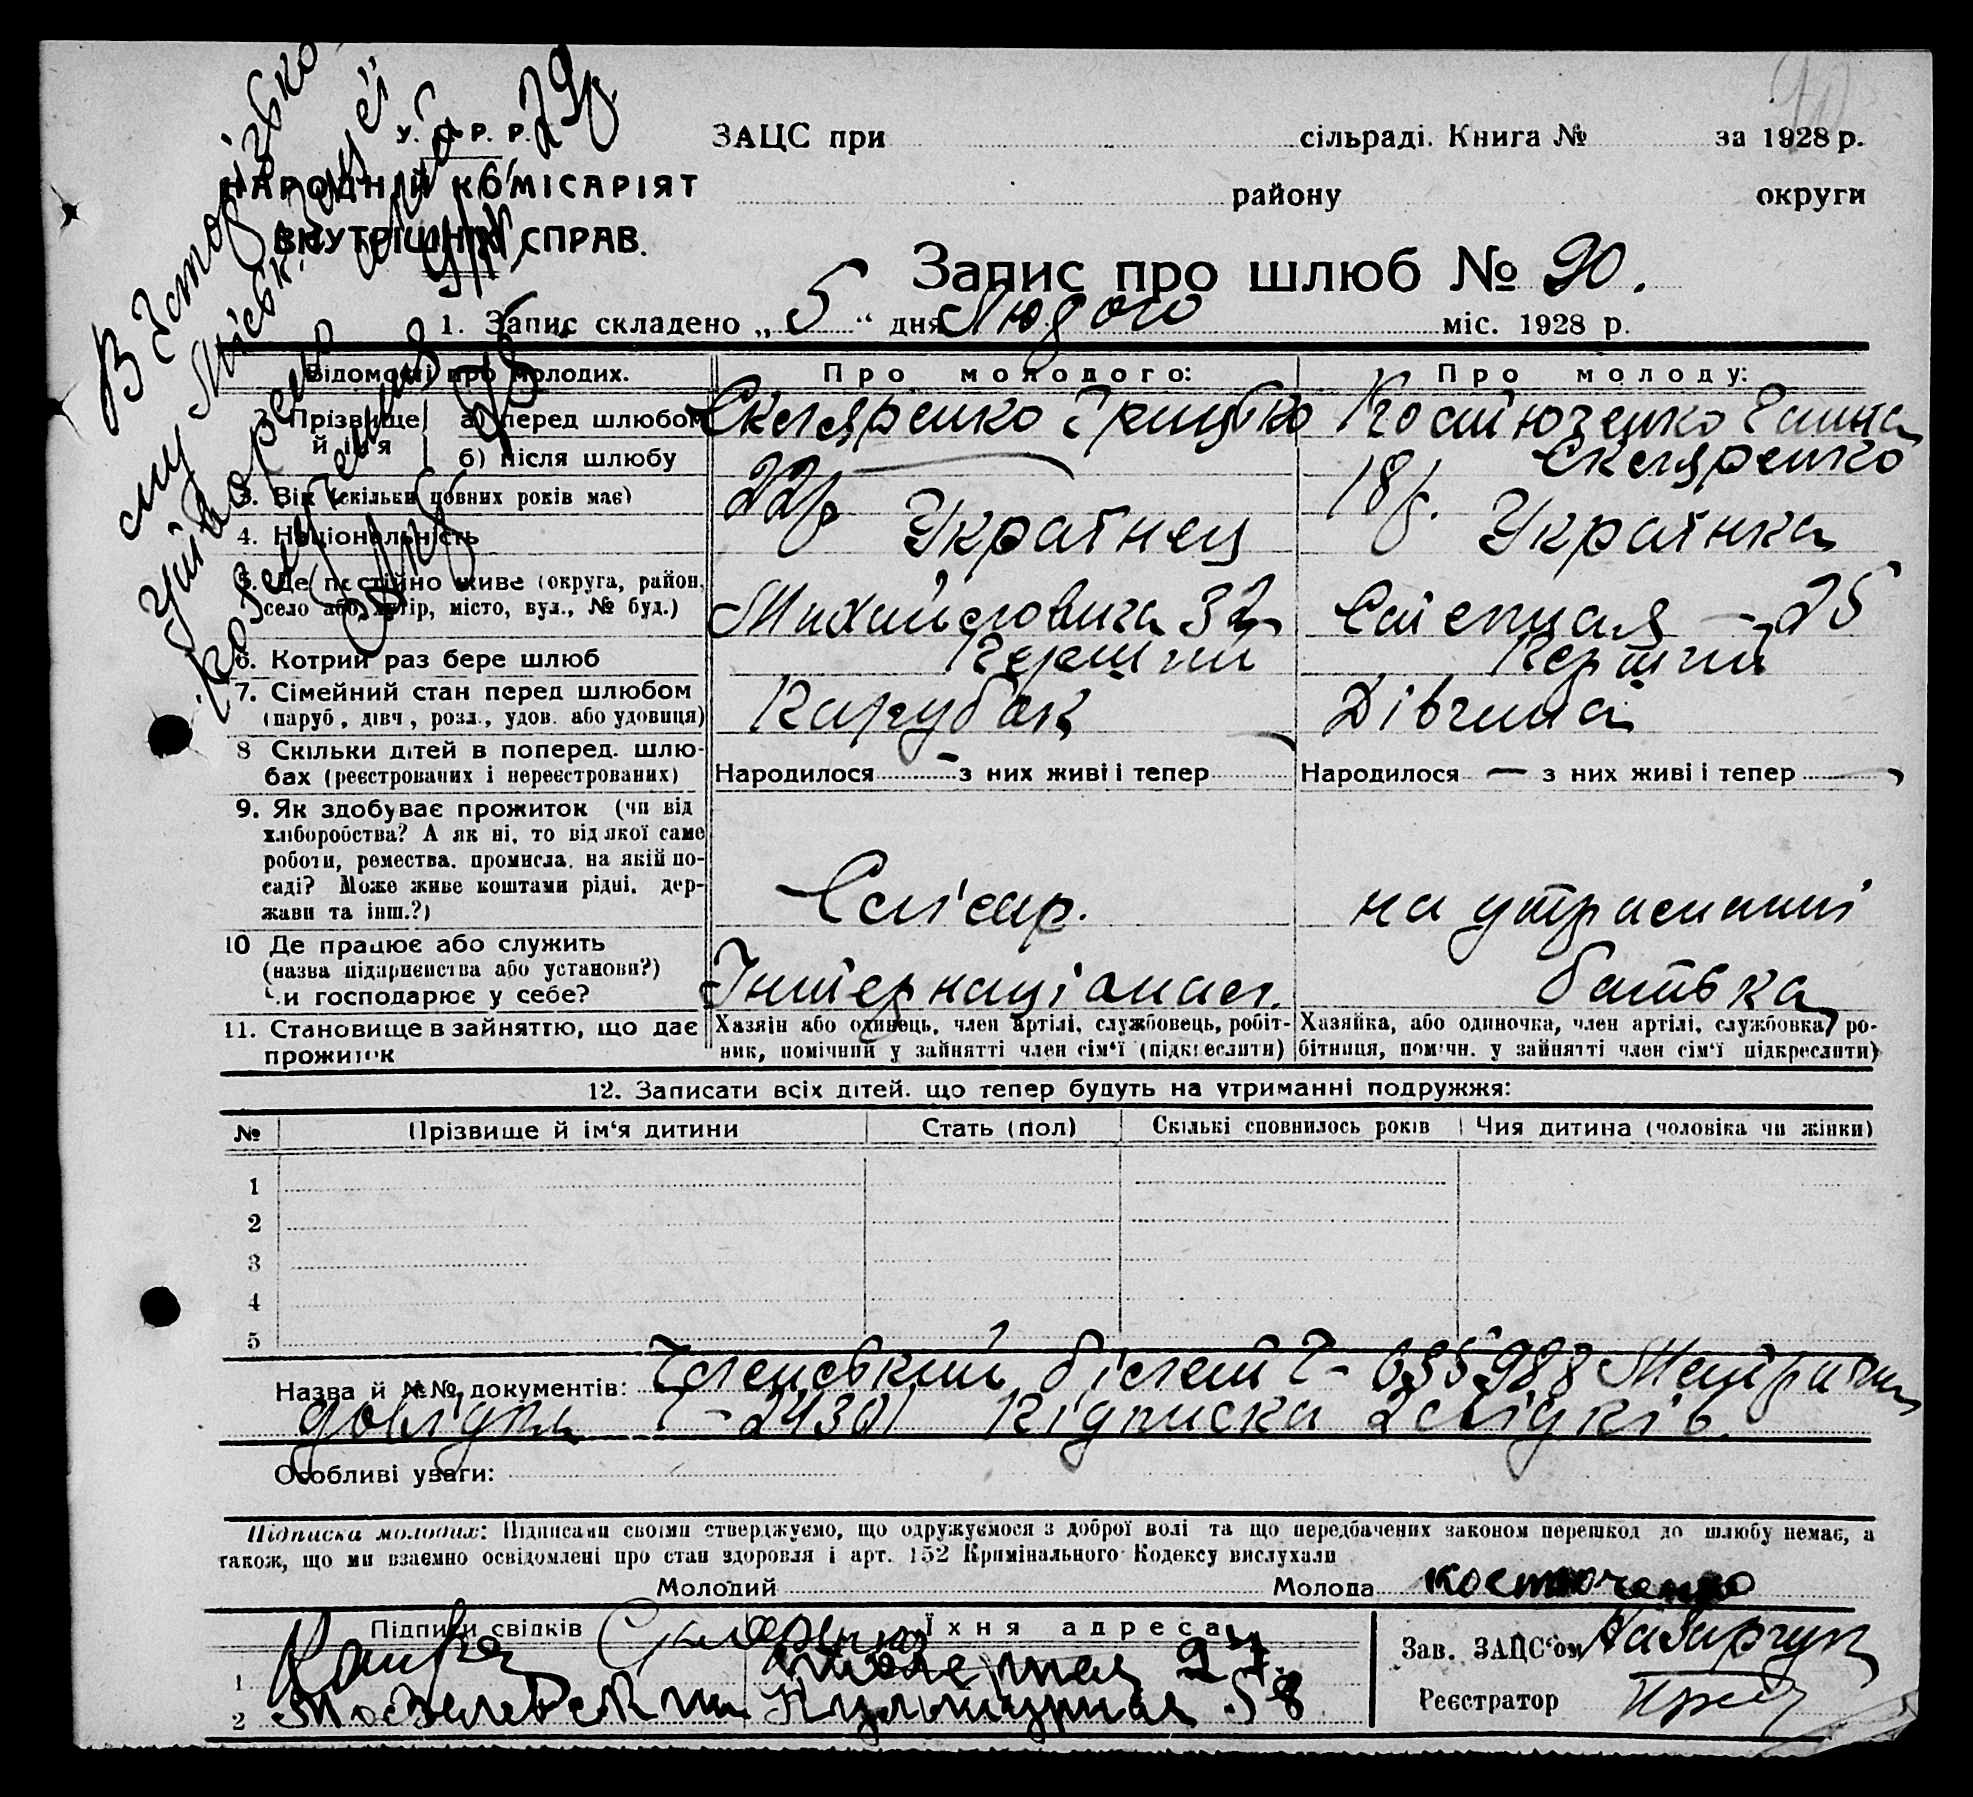 У. С. Р. Р.
НАРОДНІЙ КОМІСАРІЯТ
ВНУТРІШНІХ СПРАВ.
ЗАЦС при сільраді. Книга № за 1928 р.
району округи
Запис про шлюб № 90.
1. Запис складено „ 5 “ дня Лютого міс. 1928 р.
Відомості про молодих. Про молодого: Про молоду:
2. Прізвище й ім'я а) перед шлюбом Скляренко Грицько Костюченко Ганна
б) після шлюбу Скляренко
3. Вік (скільки повних років має) 22 р 18 р.
4. Національність Українец Українка
5. Де постійно живе (округа, район,
село або хутір, місто, вул., № буд.) 32 Степная — 25
6. Котрий раз бере шлюб Перший Перший
7. Сімейний стан перед шлюбом
(паруб., дівч., розл., удов. або удовиця) Парубок Дівчина
8 Скільки дітей в поперед. шлю-
бах (реєстрованих і нереєстрованих) Народилося — з них живі і тепер Народилося — з них живі і тепер —
9. Як здобуває прожиток (чи від
хліборобства? А як ні, то від якої саме
роботи, ремества, промисла, на якій по-
саді? Може живе коштами рідні, дер-
жави та інш.?) Слісар. на утриманні
10 Де працює або служить
(назва підприємства або установи?)
Чи господарює у себе? Інтернаціонал. батька
11. Становище в зайняттю, що дає
прожиток
Хазяін або одинець, член артілі, службовець, робіт-
ник, помічний у зайнятті член сім'ї (підкреслити)
Хазяйка, або одиночка, член артілі, службовка, ро-
бітниця, помічн. у зайнятті член сім'ї підкреслити)
12. Записати всіх дітей, що тепер будуть на утриманні подружжя:
№ Прізвище й ім'я дитини Стать (пол) Скількі сповнилось років Чия дитина (чоловіка чи жінки)
1
2
3
4
5
Назва й №№ документів: Членський білет Ч- 635988 Метрична
довідка Ч-24301 Підписка 2 свідків.
Особливі уваги:
Підписка молодих: Підписами своїми стверджуємо, що одружуємося з доброї волі та що передбачених законом перешкод до шлюбу немає, а
також, що ми взаємно освідомлені про стан здоровля і арт. 152 Кримінального Кодексу вислухали
Молодий Молода костюченко
Підписи свідків Їхня адреса
1 27.
2 Культурная 58
Зав. ЗАЦС'ом Назарчук
Реєстратор